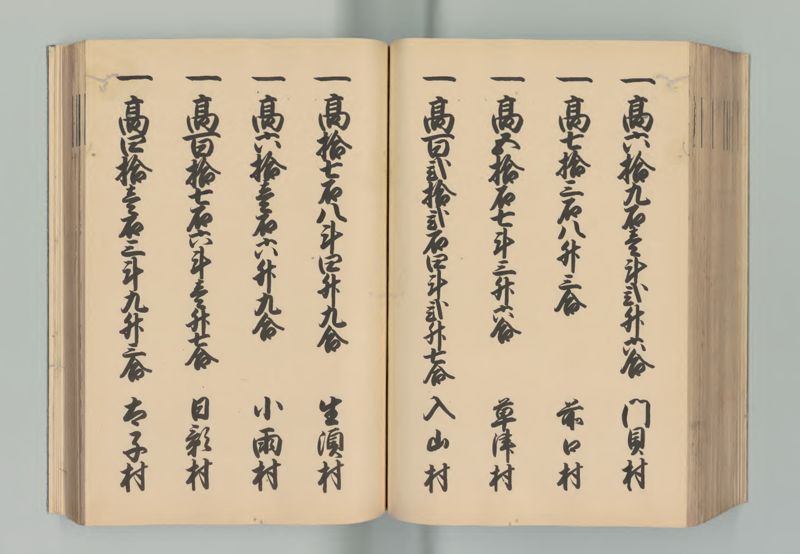 一 高六拾九石壱斗弐升六合 門貝村
一 高七拾三石八升三合 前口村
一 高五拾石七斗三升六合 草津村
一 高百弐拾弐石四斗弐升七合 入山村
一 高拾七石八斗四升九合 生須村
一 高六拾壱石六升九合 小雨村
一 高百拾七石六斗壱升七合 日影村
一 高四拾壱石三斗九升三合 太子村